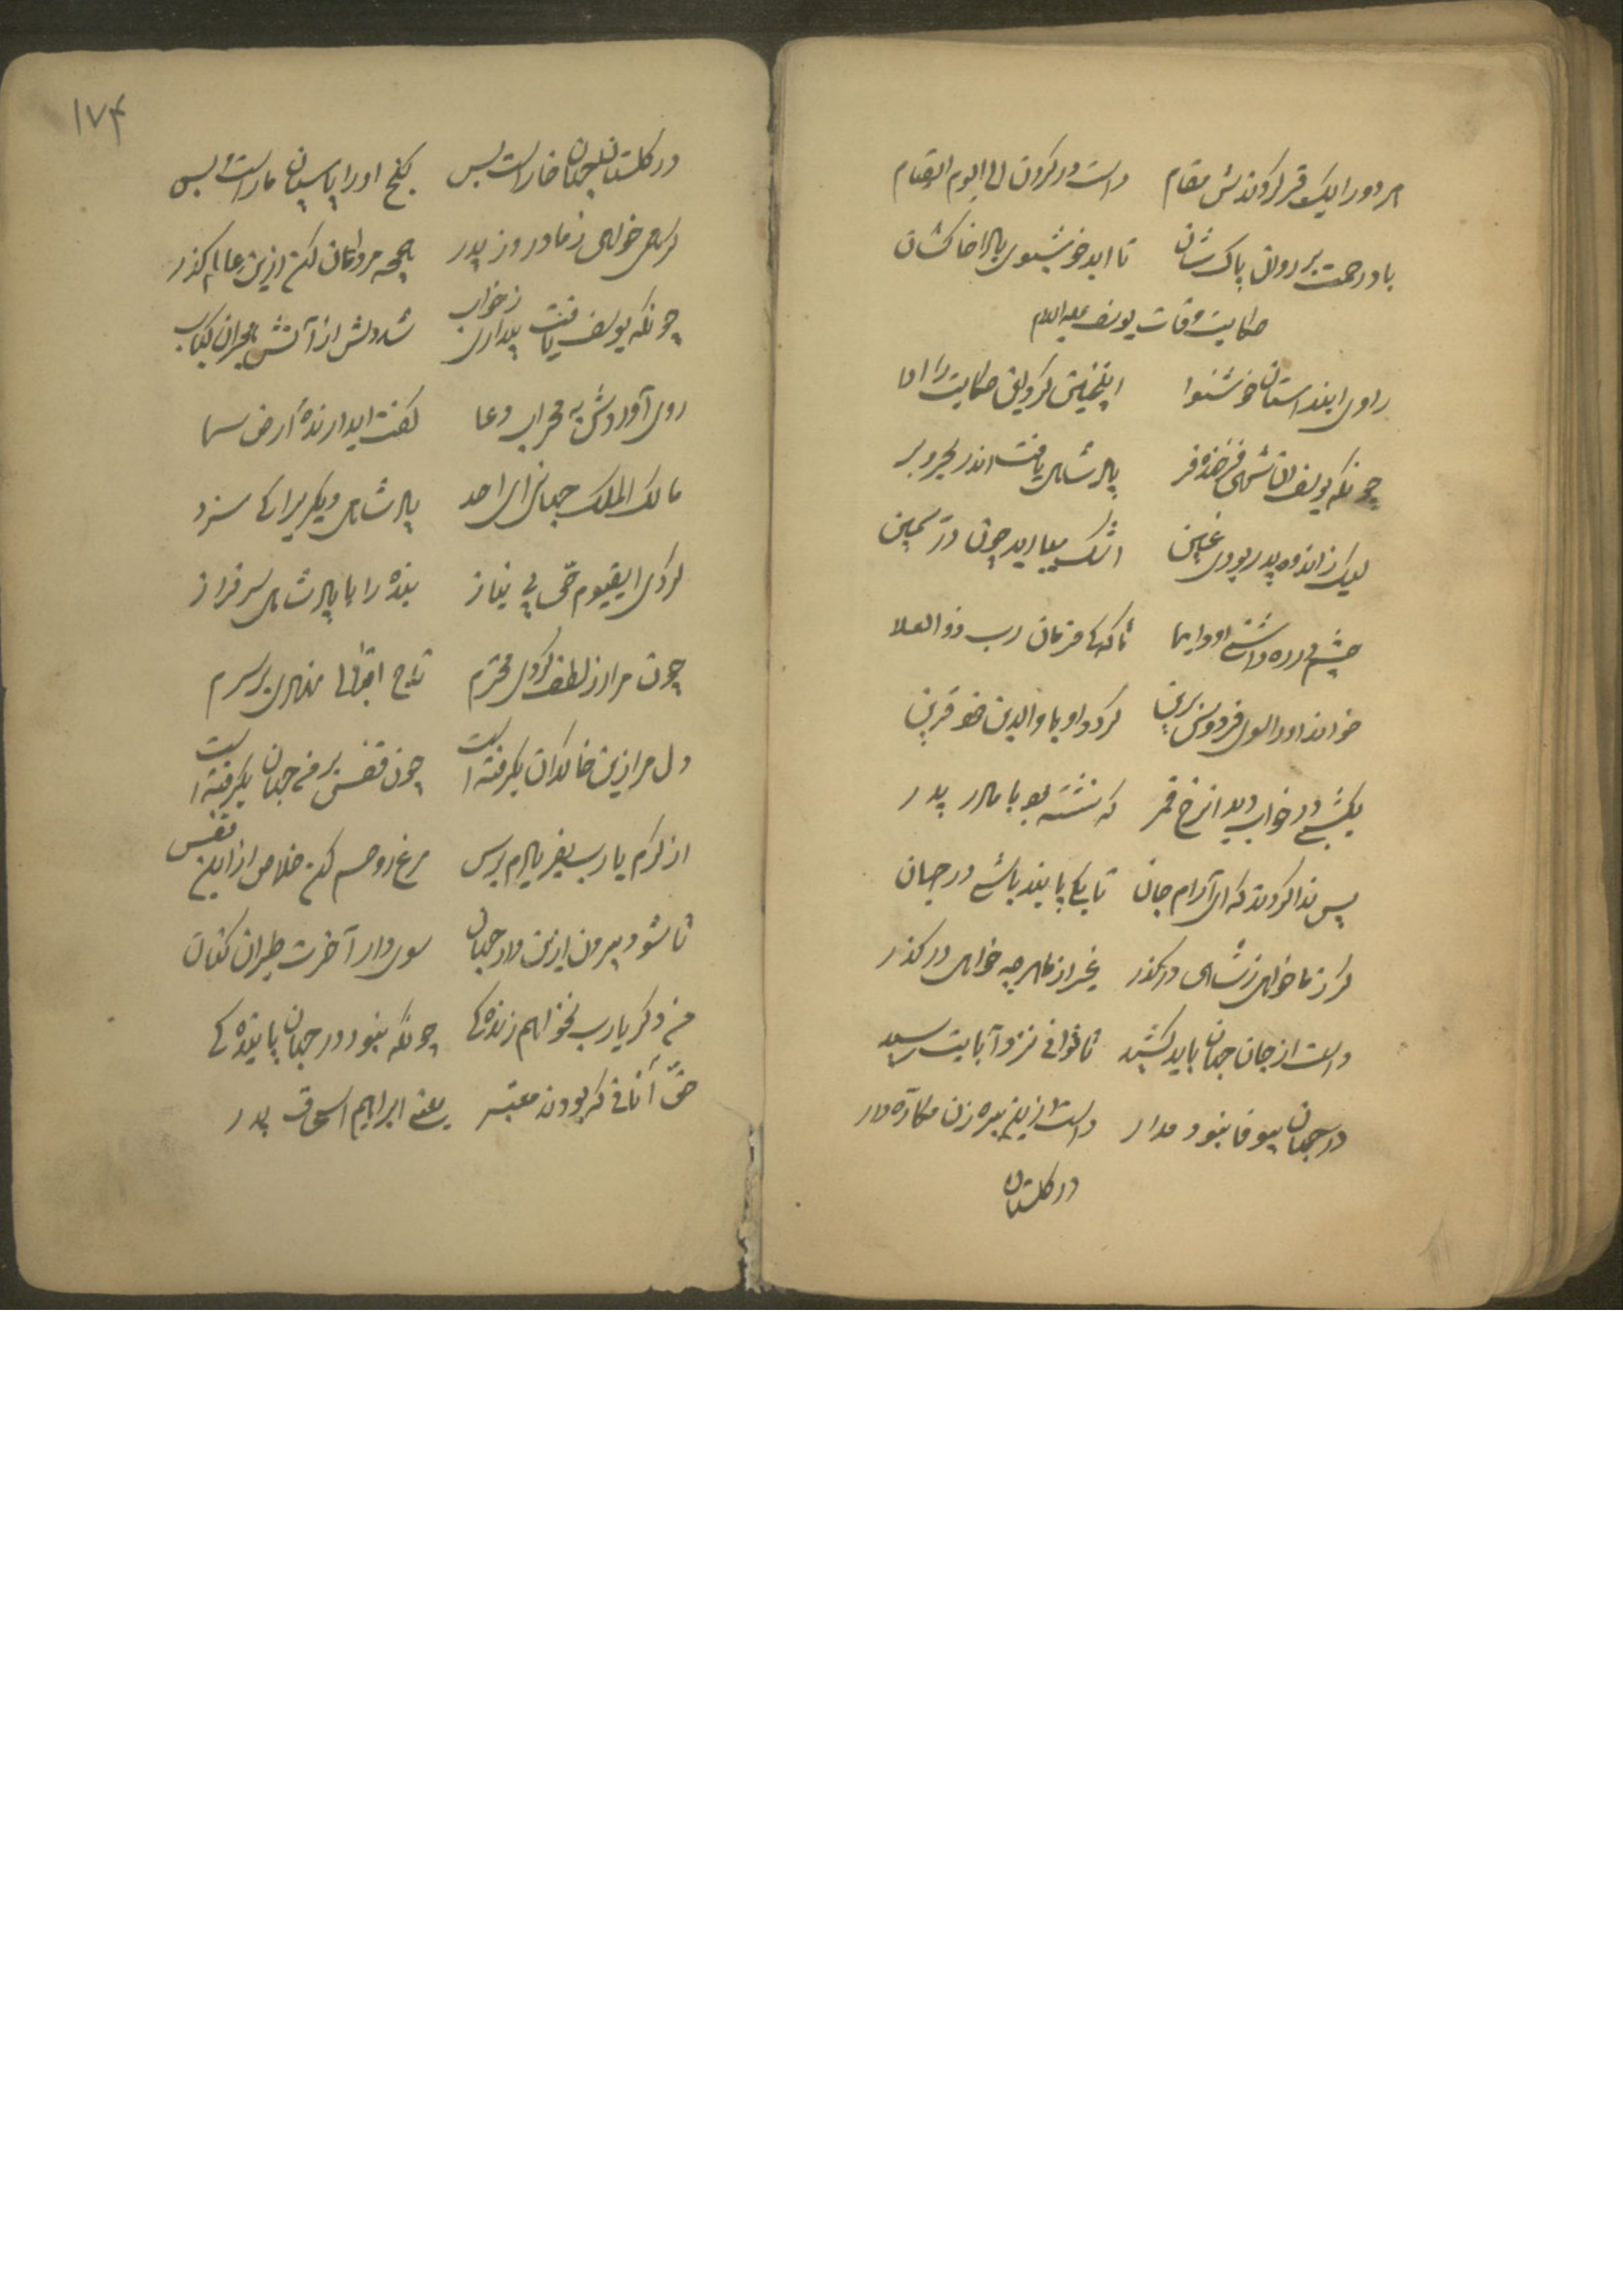 هر دو را یک قبر کردندش مقام دست در گردن الی الیوم القیام
باد رحمت بر روان پاک شان تا ابد خوشبوی بادا خاکشان
حکایت وفات یوسف علیه السلام
راوی ایندستان خوشنوا اینچنین کرد این حکایت را ادا
چونکه یوسف آن شه فرخنده فر پادشاهی یافت اندر بحر و بر
لیک ز اندوه پدر بودی غمین اشک میبارید چون در ثمین
چشم در ره داشتی او دایما تا که کی فرمان رب ذو العلا
خواند او را سوی فردوس برین گردد او با والدین خود قرین
یکشبی در خواب دید آنرخ قمر که نشسته بود با مادر پدر
پس ندا کردند که ای آرام جان تا بکی پابند باشی در جهان
گر ز ما خواهی ز شاهی درگذر غیر از ما هر چه خواهی درگذر
دست از جان جهان باید کشید تا توانی نزد آبایت رسید
در جهان بیوفا نبود مدار دست ازین پیره زن مکاره دار
در گلستان
۱۷۴
در گلستان جهان خار است بس گنج او را پاسبان مار است بس
گر همی خواهی ز مادر وز پدر همچو مردان کن ازین عالم گذر
چونکه یوسف یافت بیداری ز خواب شد دلش از آتش هجران کباب
روی آوردش به محراب دعا گفت ای دارنده ارض سما
مالک الملک جهانی ای احد پادشاهی دیگریرا کی سزد
کردی ای قیوم حی بی نیاز بنده را با پادشاهی سرفراز
چون مرا از لطف کردی محترم تاج اقبالم نهادی بر سرم
دل مرا زین خاکدان بگرفته است چون قفس بر من جهان بگرفته است
از کرم یا رب بفریادم برس مرغ روحم کن خلاص از این قفس
تا شود بیرون ازین دار جهان سوی دار آخرت طیران کنان
من دگر یا رب نخواهم زندگی چونکه نبود در جهان پایندگی
حق آنانی که بودند معتبر یعنی ابراهیم اسحق پدر